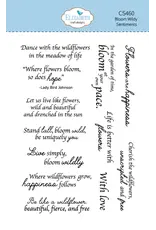 ELIZABETH
CS460
Bloom Wildly
Sentiments
Dance with the wildflowers
in the meadow of life
"Where flowers bloom,
so does hope"
-Lady Bird Johnson
Let us live like flowers,
wild and beautiful
and drenched in the sun
Stand tall, bloom wild,
be uniquely you
Live simply,
bloom wildly
Where wildflowers grow,
happiness follows
Be like a wildflower...
beautiful, fierce, and free
In the garden of time,
bloom
at your
own pace.
Life is better with
flowers
With love
Flowers are happiness
Cherish the wildflowers,
unscripted and free